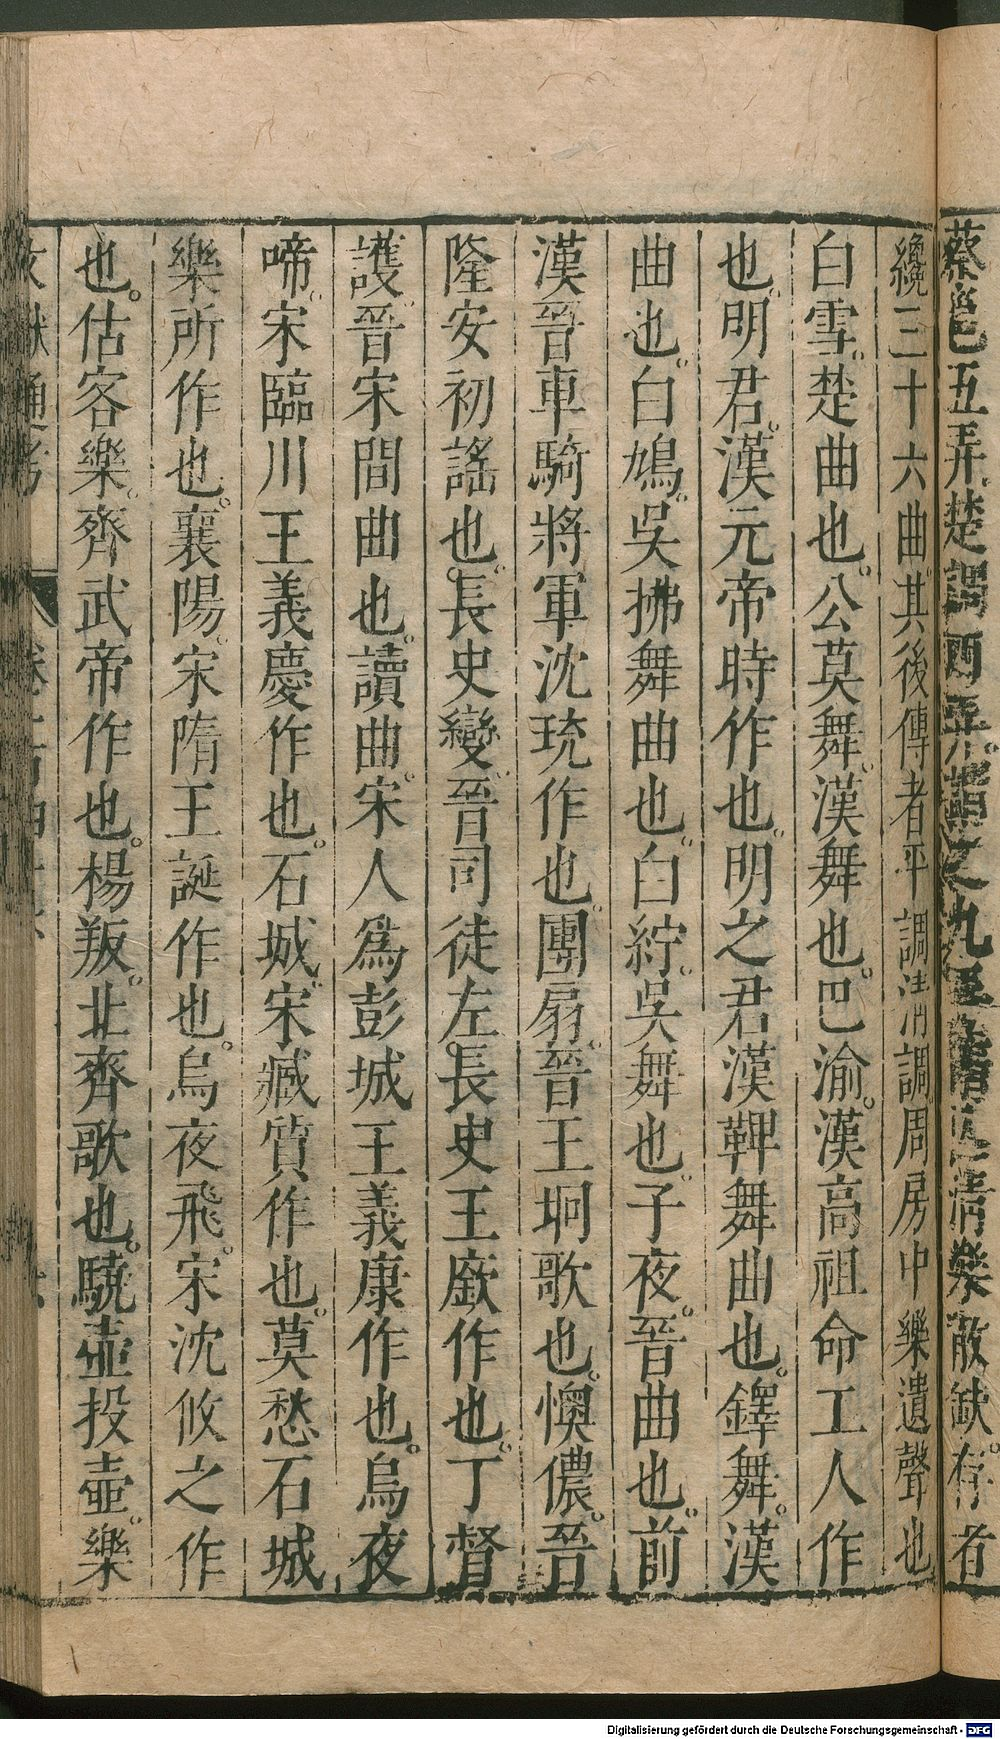 蔡邕五弄楚調四弄謂之九弄隋清樂散缺存者
纔三十六曲其後傳者平調清調周房中樂遺聲也
白雪楚曲也公莫舞漢舞也巴渝漢高祖命工人作
也明君漢元帝時作也明之君漢鞞舞曲也鐸舞漢
曲也白鳩吳拂舞曲也白紵吳舞也子夜晉曲也前
漢晉車騎將軍沈珫作也團扇晉王坰歌也懊儂晉
隆安初謠也長史變晉司徒左長史王廞作也丁督
護晉宋間曲也讀曲宋人爲彭城王義康作也烏夜
啼宋臨川王義慶作也石城宋臧質作也莫愁石城
樂所作也襄陽宋隋王誕作也烏夜飛宋沈攸之作
也估客樂齊武帝作也楊叛北齊歌也驍壺投壺樂
通考
Digitalisierung gefördert durch die Deutsche Forschungsgemeinschaft - DFG